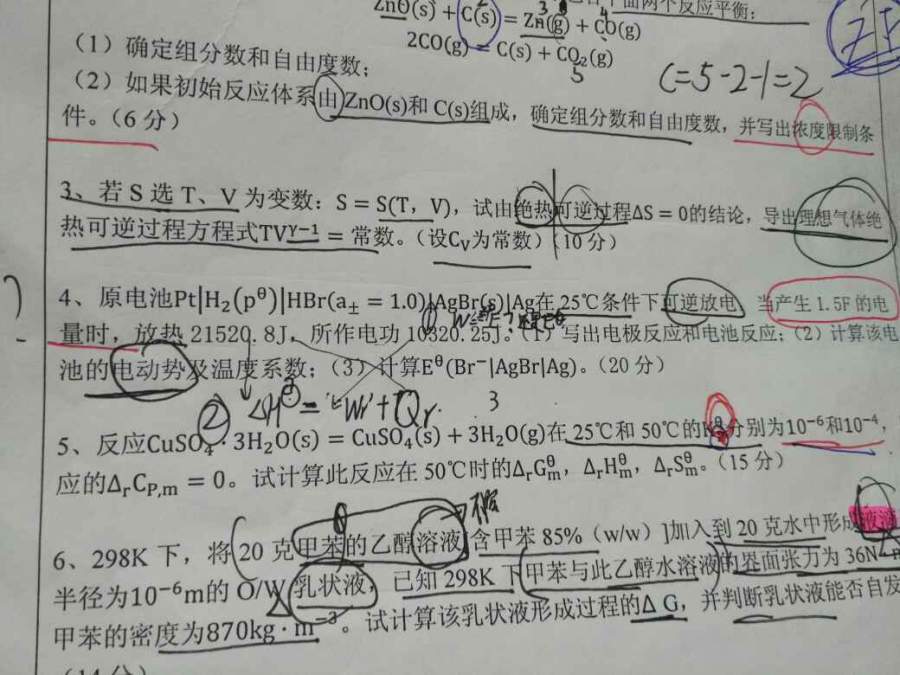 下面两个反应平衡：
ZnO(s) + C(s) = Zn(g) + CO(g)
2CO(g) = C(s) + CO₂(g)
5
（1）确定组分数和自由度数；
C=5-2-1=2
（2）如果初始反应体系由 ZnO(s)和 C(s)组成，确定组分数和自由度数，并写出浓度限制条
件。（6 分）
3、若 S 选 T、V 为变数：S = S(T，V)，试由绝热可逆过程ΔS = 0的结论，导出理想气体绝
热可逆过程方程式TV^{γ−1} = 常数。（设C_V为常数）（10 分）
?
4、原电池Pt|H₂(p^θ)|HBr(a± = 1.0)|AgBr(s)|Ag在 25℃条件下可逆放电，当产生 1.5F 的电
量时，放热 21520.8J，所作电功 10320.25J。（1）写出电极反应和电池反应；（2）计算该电
池的电动势及温度系数；（3）计算E^θ(Br⁻|AgBr|Ag)。（20 分）
② ΔH = -Wr + Qr
3
5、反应CuSO₄·3H₂O(s) = CuSO₄(s) + 3H₂O(g)在 25℃和 50℃的K^θ分别为10⁻⁶和10⁻⁴，
应的Δ_rC_{P,m} = 0。试计算此反应在 50℃时的Δ_rG_m^θ，Δ_rH_m^θ，Δ_rS_m^θ。（15 分）
6、298K 下，将 20 克甲苯的乙醇溶液[含甲苯 85%（w/w）]加入到 20 克水中形成液滴
半径为10⁻⁶m的 O/W 乳状液，已知 298K 下甲苯与此乙醇水溶液的界面张力为 36N
甲苯的密度为870kg·m⁻³。试计算该乳状液形成过程的Δ G，并判断乳状液能否自发
（14 分）